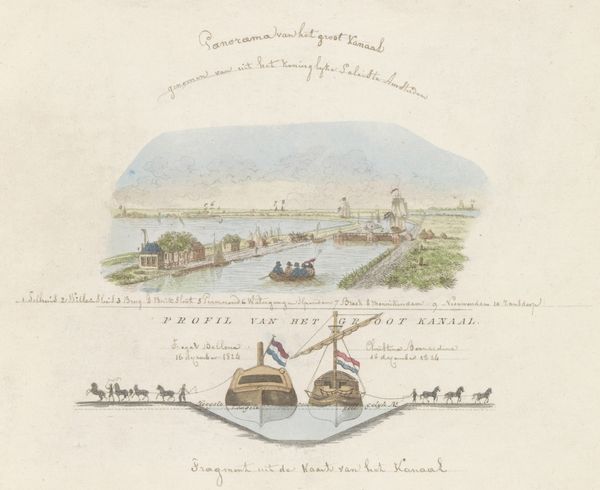 Panorama van het groot Kanaal
genomen van uit het Koninglyke Paleis te Amsterdam
1 Tolhuis 2 Willem Sluis 3 Brug 4 Buik Sloot 5 Purmerend 6 Watergang 7 Broek 8 Monnikendam 9 Nieuwendam 10 Ransdorp
PROFIL VAN HET GROOT KANAAL.
Fregat Bellona
16 december 1824
Christina Bernardina
16 december 1824
Hoogste
Laagste
Fragment uit de Kaart van het Kanaal